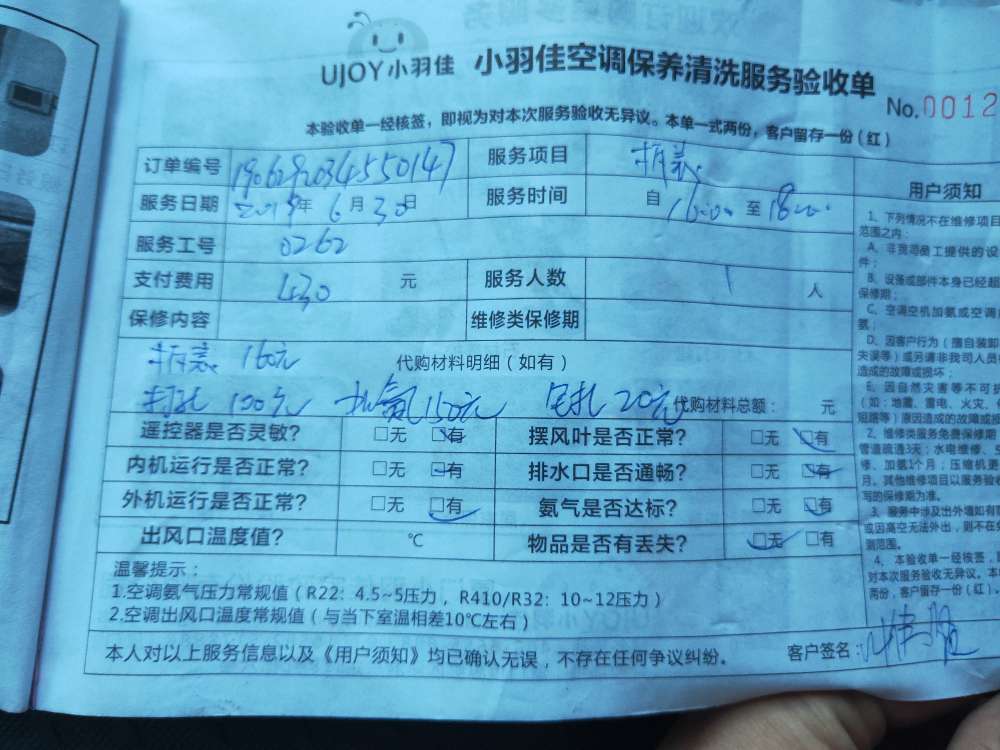 UJOY小羽佳 小羽佳空调保养清洗服务验收单
No.0012
本验收单一经核签，即视为对本次服务验收无异议。本单一式两份，客户留存一份（红）
订单编号 服务项目 拆装
服务日期 2019年 6月30日 服务时间 自 16:00 至 18:00
服务工号 0262
支付费用 430 元 服务人数 1 人
保修内容 维修类保修期
拆装 160元 代购材料明细（如有）
打孔 100元 加氟150元 20元 代购材料总额： 元
遥控器是否灵敏? □无 □有 摆风叶是否正常? □无 □有
内机运行是否正常? □无 □有 排水口是否通畅? □无 □有
外机运行是否正常? □无 □有 氨气是否达标? □无 □有
出风口温度值? ℃ 物品是否有丢失? □无 □有
温馨提示：
1.空调氨气压力常规值（R22：4.5~5压力，R410/R32：10~12压力）
2.空调出风口温度常规值（与当下室温相差10℃左右）
本人对以上服务信息以及《用户须知》均已确认无误，不存在任何争议纠纷。 客户签名：
用户须知
1、下列情况不在维修项目
范围之内：
A、非我司员工提供的设
件；
B、设备或部件本身已经超
保修期；
C、空调空机加氨或空调
氨；
D、因客户行为（擅自装卸
失误等）或另请非我司人员
造成的故障或损坏；
E、因自然灾害等不可
（如：地震、雷电、火灾、
短路等）原因造成的故障或
2、维修类服务免费保修期
管道疏通3天；水电维修、
修、加氨1个月；压缩机更
月。其他维修项目以服务验收
写的保修期为准。
3、服务中涉及出外墙如有
或因高空无法外出，则不在
测范围。
4、本验收单一经核签，
对本次服务验收无异议。本
两份，客户留存一份（红）。